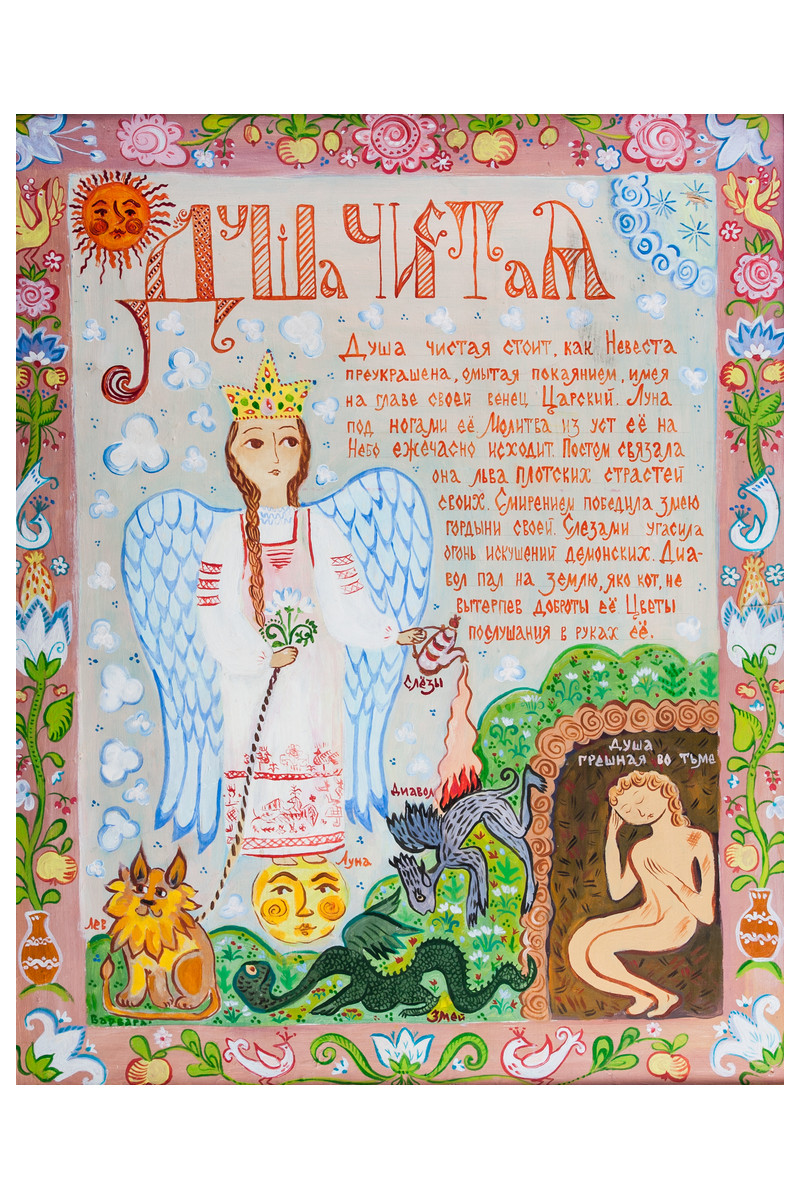 Душа Чистая
Душа чистая стоит, как Невеста
преукрашена, омытая покаянием, имея
на главе своей венец Царский. Луна
под ногами её. Молитва из уст её на
Небо ежечасно исходит. Постом связала
она льва плотских страстей
своих. Смирением победила змею
гордыни своей. Слезами угасила
огонь искушений демонских. Диа-
вол пал на землю, яко кот, не
вытерпев доброты её. Цветы
послушания в руках её.
Слёзы
Душа
грешная во тьме
Диавол
Луна
Лев
Змей
Варвара